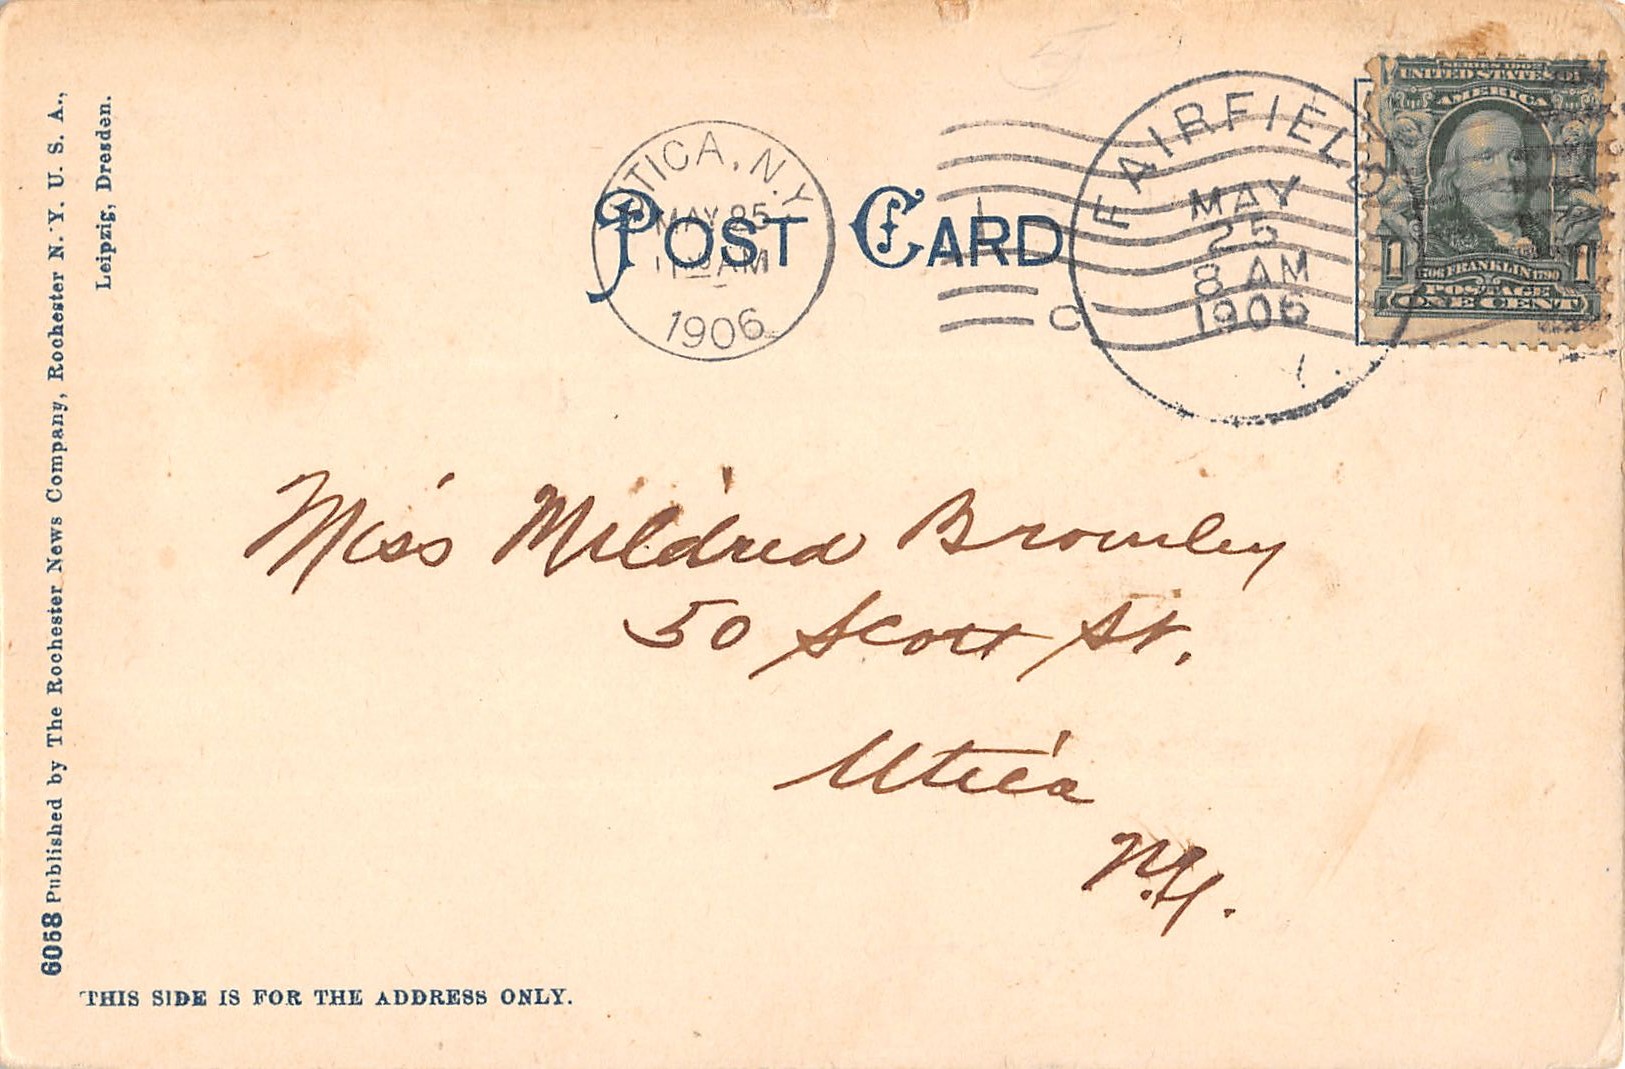 6058 Published by The Rochester News Company, Rochester N. Y. U. S. A.,
Leipzig, Dresden.
POST CARD
UTICA, N.Y.
MAY 25
AM
1906
C
FAIRFIELD
MAY
25
8 AM
1906
SERIES 1902
UNITED STATES OF
AMERICA
1 1
1706 FRANKLIN 1790
POSTAGE
ONE CENT
Miss Mildred Bromley
50 Scott St.
Utica
N.Y.
THIS SIDE IS FOR THE ADDRESS ONLY.